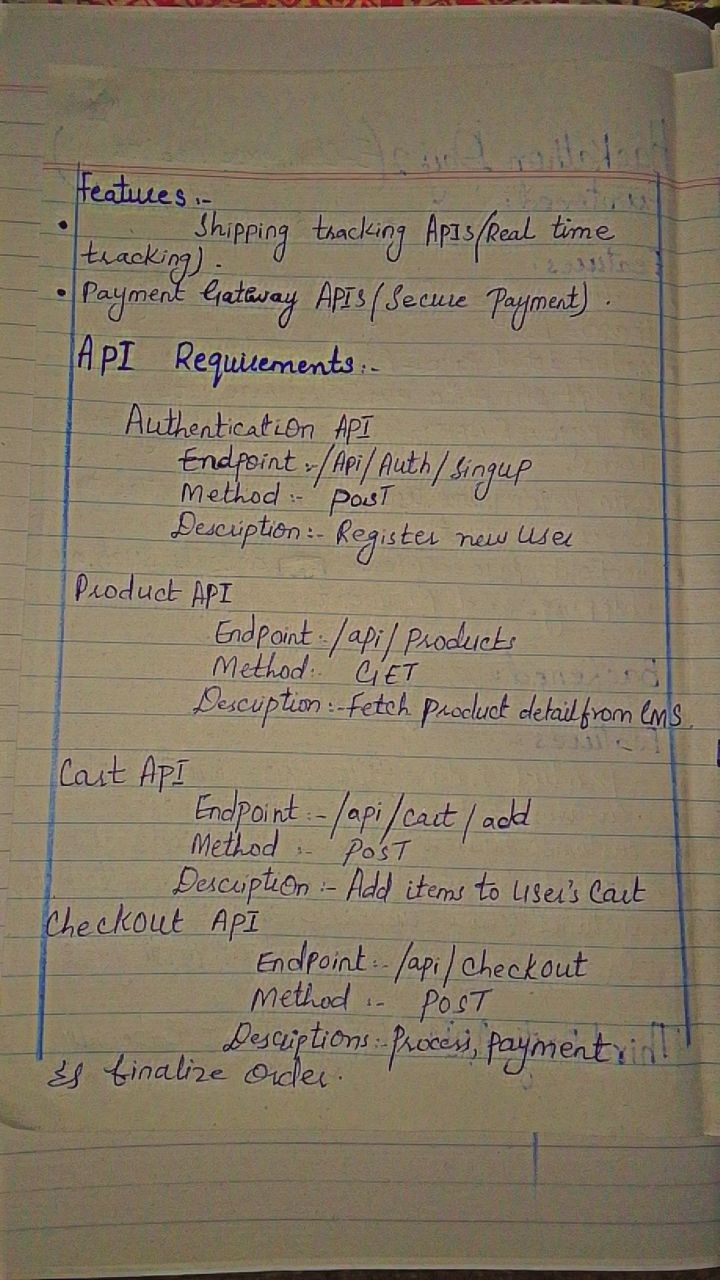 Features :-
• Shipping tracking APIs/Real time
tracking).
• Payment Gateway APIs (Secure Payment).
API Requirements:-
Authentication API
Endpoint :- /Api/Auth/Singup
Method :- POST
Description :- Register new User
Product API
Endpoint :- /api/Products
Method :- GET
Description :- Fetch Product detail from CMS.
Cart API
Endpoint :- /api/cart/add
Method :- POST
Description :- Add items to User's Cart
Checkout API
Endpoint :- /api/checkout
Method :- POST
Descriptions :- Process, Payment
& finalize Order.